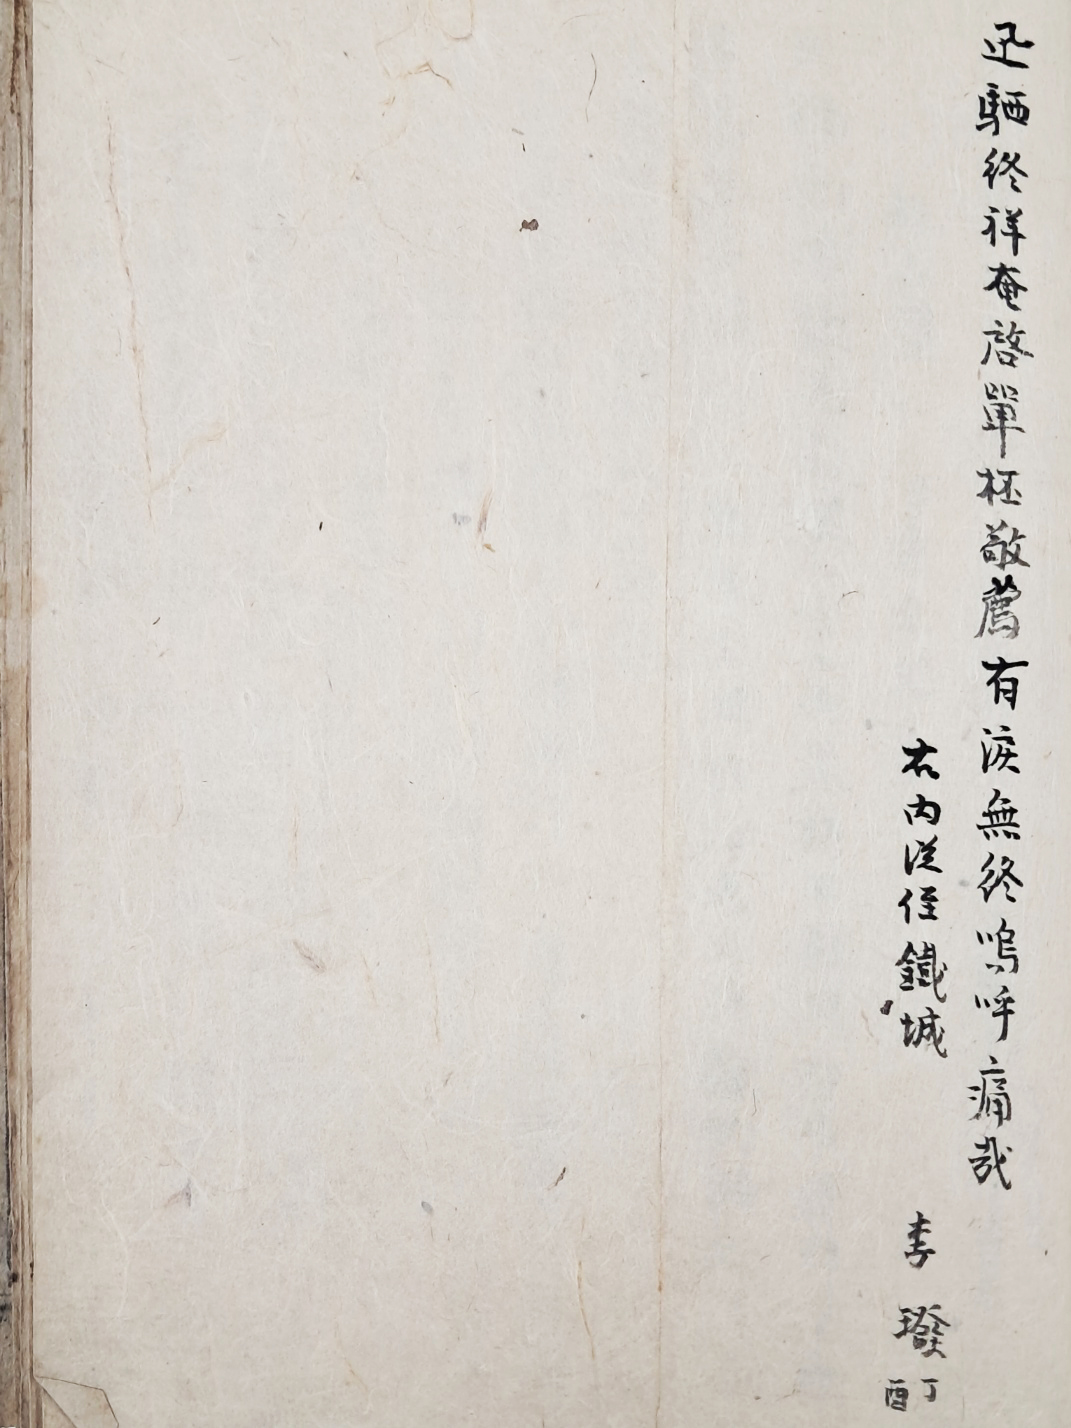 迅駟終祥奄啓單柸敬薦有淚無終嗚呼痛哉
右內從侄鐵城 李璒 丁酉